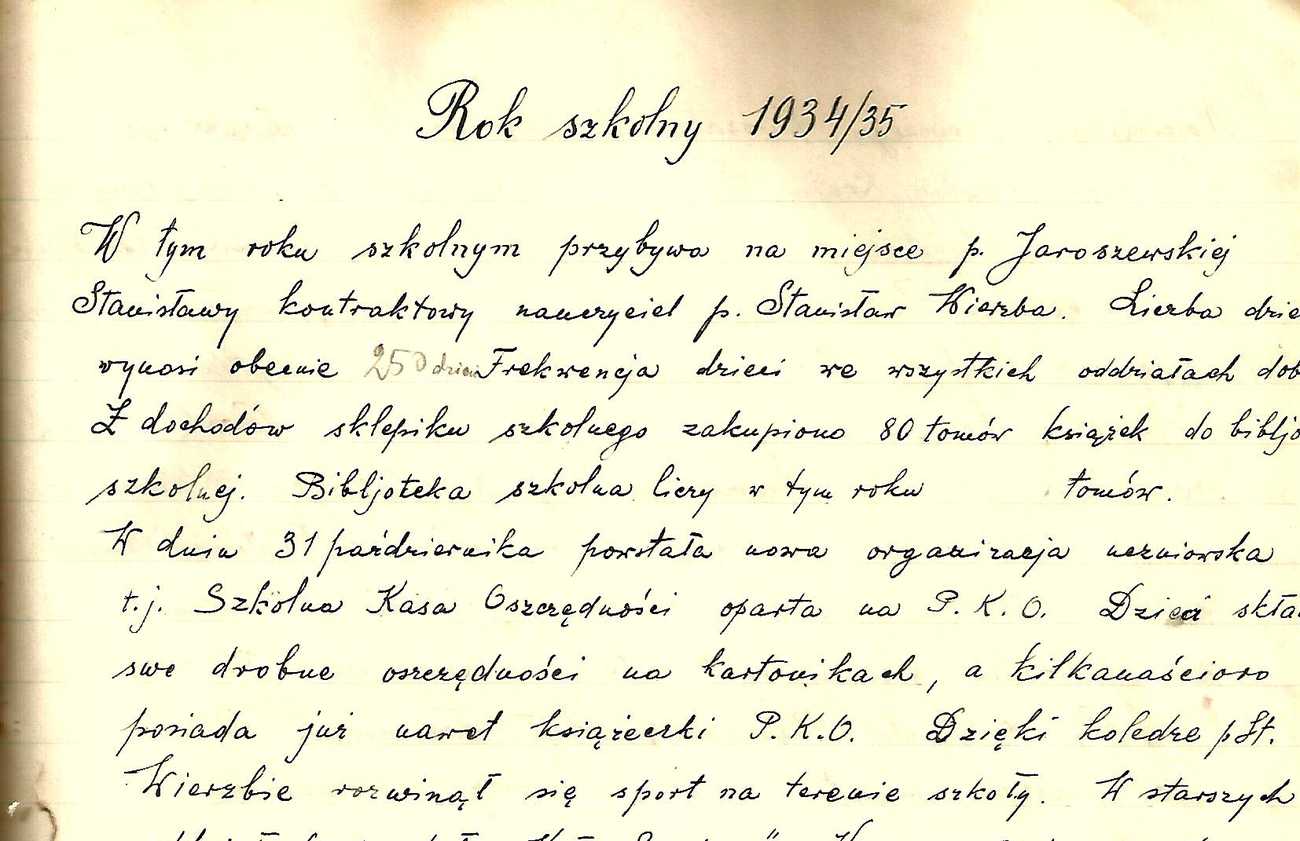 Rok szkolny 1934/35
W tym roku szkolnym przybywa na miejsce p. Jaroszewskiej
Stanisławy kontraktowy nauczyciel p. Stanisław Wierzba. Liczba dzie
wynosi obecnie 250 dzieci Frekwencja dzieci we wszystkich oddziałach dob
Z dochodów sklepiku szkolnego zakupiono 80 tomów książek do bibljo
szkolnej. Bibljoteka szkolna liczy w tym roku tomów.
W dniu 31 października powstała nowa organizacja uczniowska
t.j. Szkolna Kasa Oszczędności oparta na P.K.O. Dzieci skła
swe drobne oszczędności na kartonikach, a kilkanaścioro
posiada już nawet książeczki P.K.O. Dzięki koledze p St.
Wierzbie rozwinął się sport na terenie szkoły. W starszych